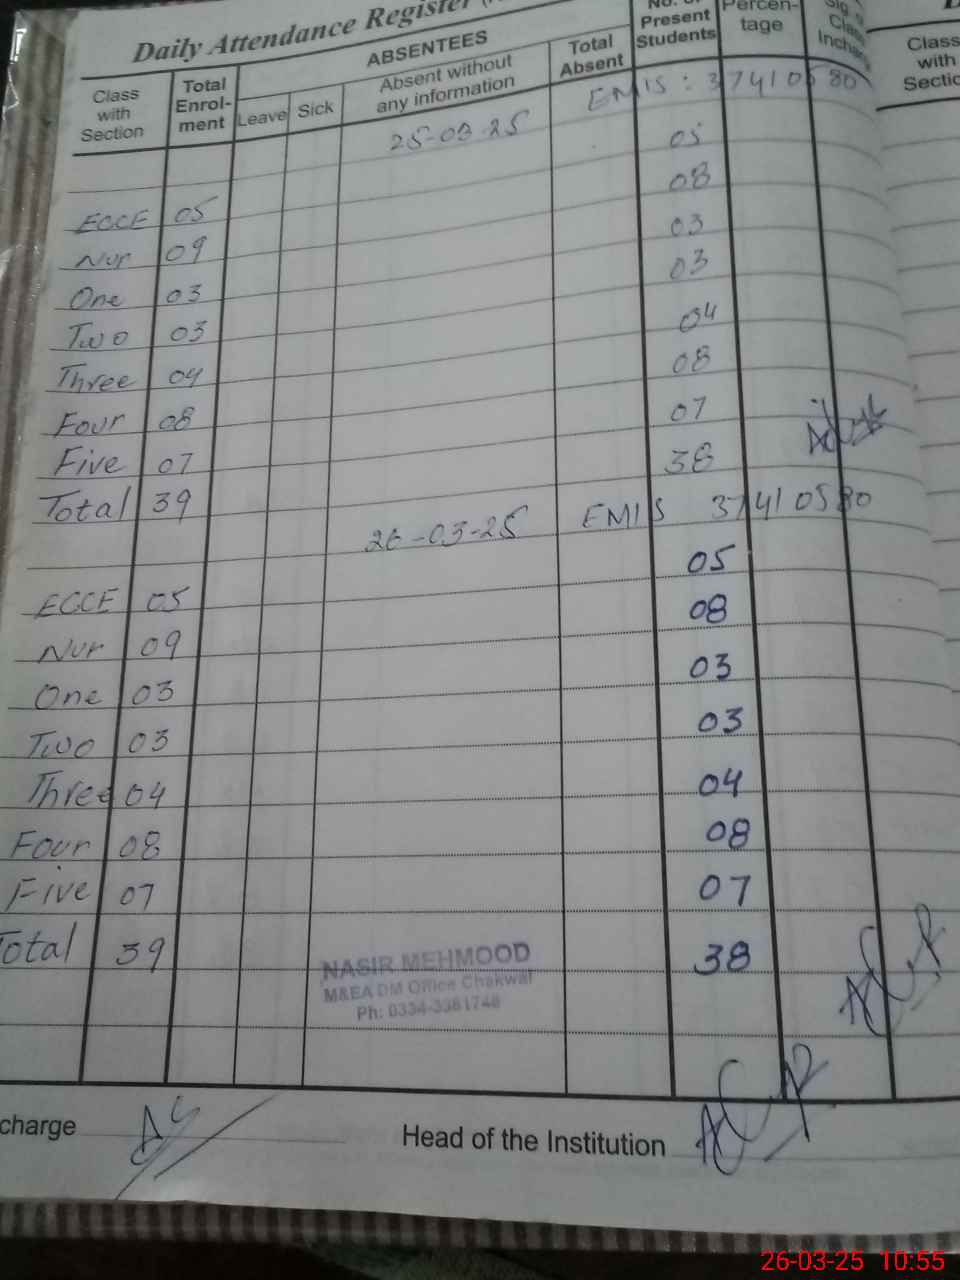 Daily Attendance Register
Class with Section
Total Enrol-ment
ABSENTEES
Leave
Sick
Absent without any information
Total Absent
No. of Present Students
Percen-tage
Class Incharge
Class with
25-03-25 EMIS : 37410580
ECCE 05 05
Nur 09 08
One 03 03
Two 03 03
Three 04 04
Four 08 08
Five 07 07
Total 39 38
26-03-25 EMIS 37410580
ECCE 05 05
Nur 09 08
One 03 03
Two 03 03
Three 04 04
Four 08 08
Five 07 07
Total 39 38
NASIR MEHMOOD
M&EA DM Office Chakwal
Ph: 0334-3381748
charge
Head of the Institution
26-03-25 10:55